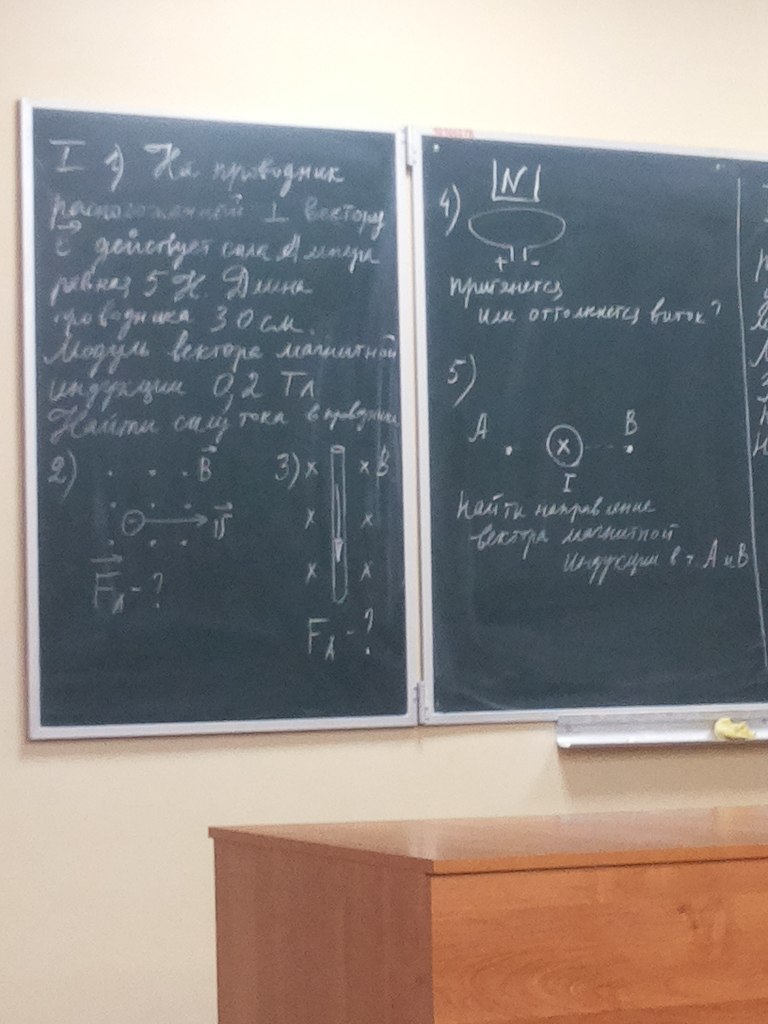 I 1) На проводник
расположенный ⊥ вектору
действует сила Ампера
равная 5 Н. Длина
проводника 30 см.
Модуль вектора магнитной
индукции 0,2 Тл
Найти силу тока в проводнике
2) B⃗
- v⃗
F⃗л - ?
3) x x B
x x
x x
FA - ?
4) N
+ -
притянется
или оттолкнется виток?
5)
A x B
I
Найти направление
вектора магнитной
индукции в т. А и В